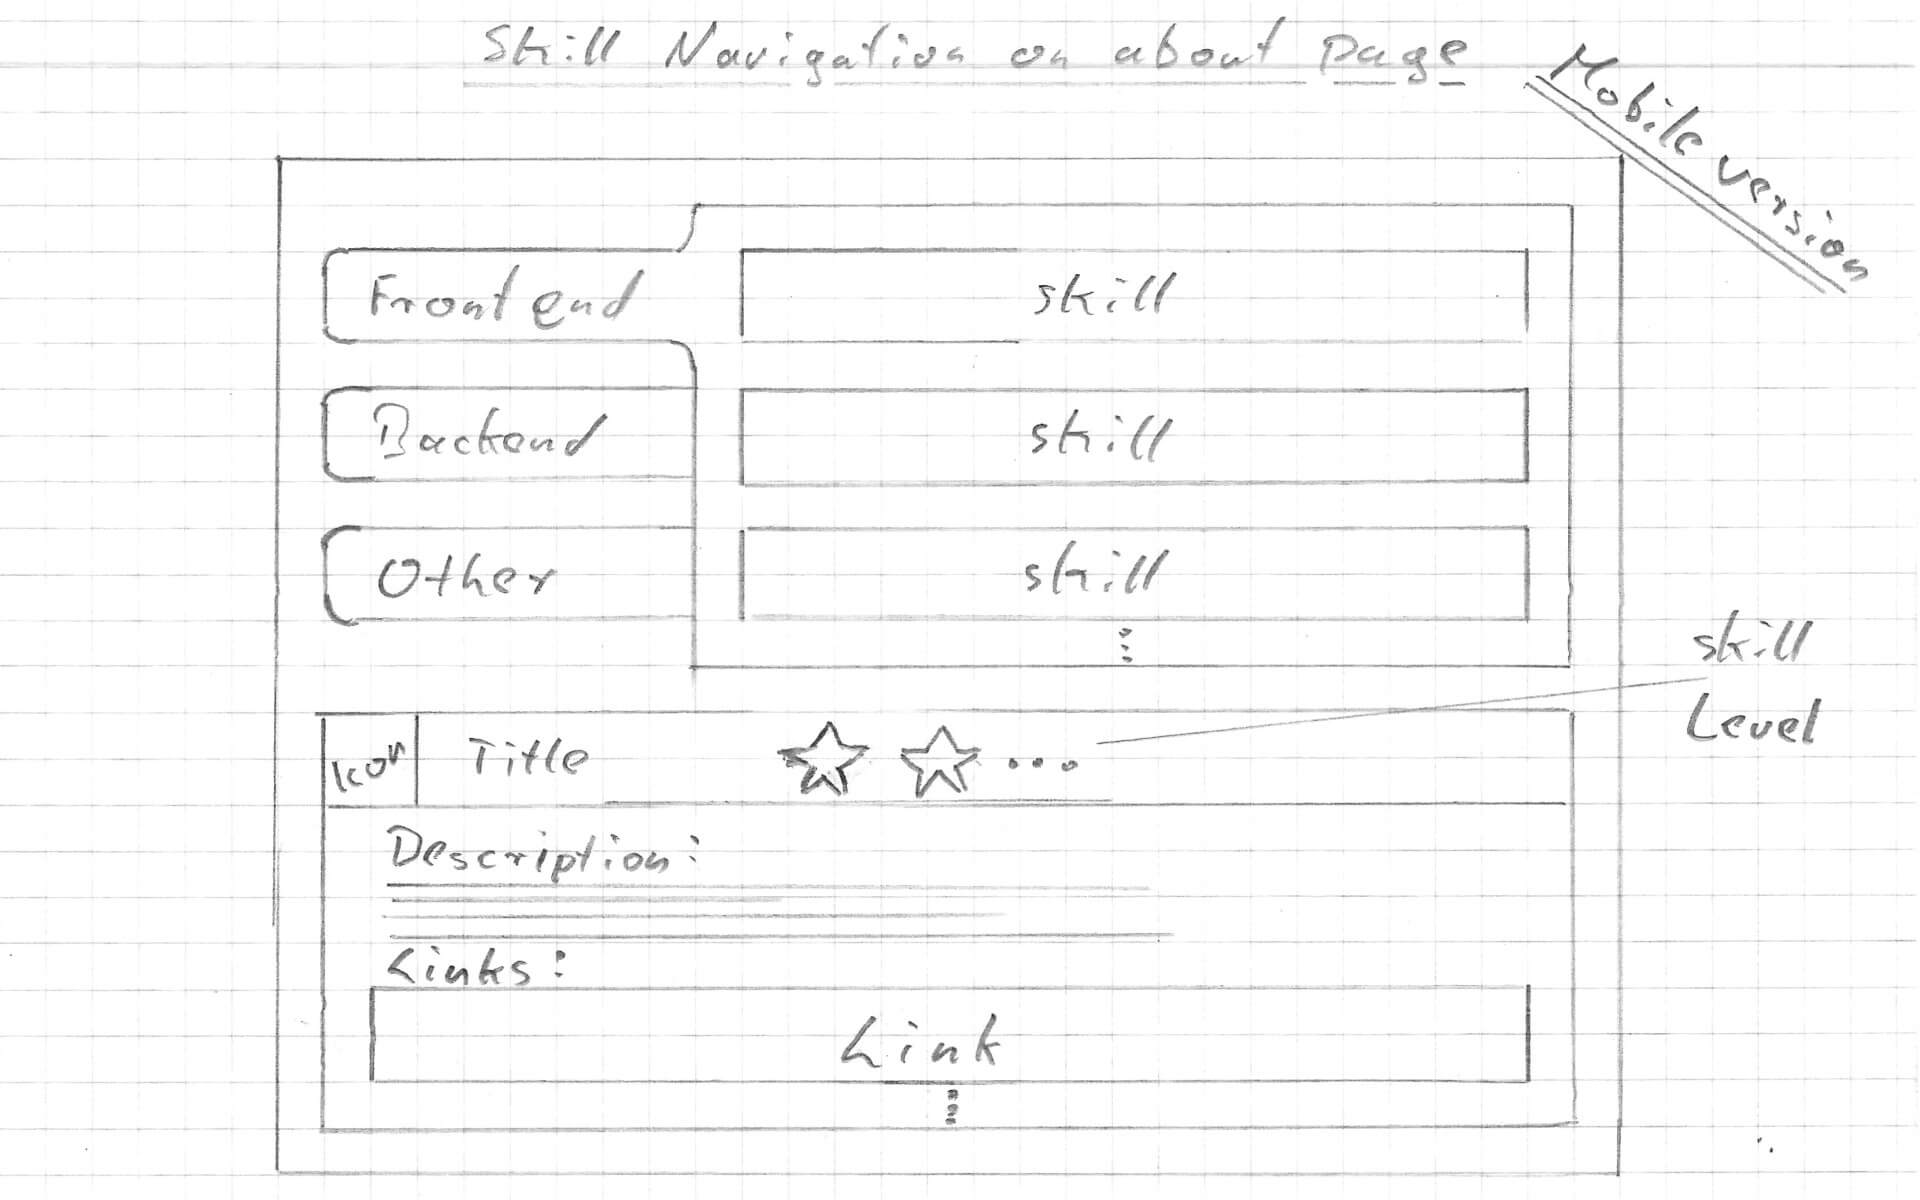 Skill Navigation on about page
Mobile version
Frontend
skill
Backend
skill
Other
skill
skill
Level
Icon
Title
Description:
Links:
Link